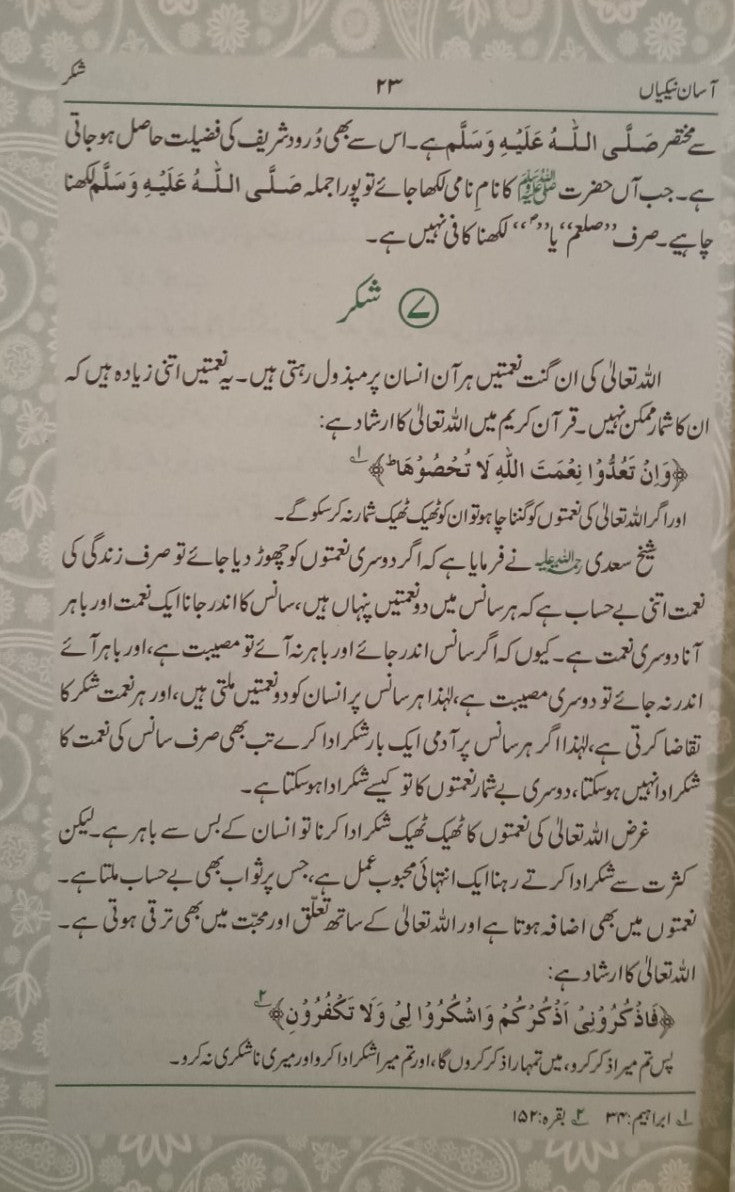 آسان نیکیاں ۲۳ شکر
سے مختصر صَلَّی اللّٰہُ عَلَیْہِ وَسَلَّم ہے۔ اس سے بھی دُرود شریف کی فضیلت حاصل ہو جاتی
ہے۔ جب آں حضرت ﷺ کا نامِ نامی لکھا جائے تو پورا جملہ صَلَّی اللّٰہُ عَلَیْہِ وَسَلَّم لکھنا
چاہیے۔ صرف ’’صلعم‘‘ یا ’’ ؐ ‘‘ لکھنا کافی نہیں ہے۔
⑦ شکر
اللہ تعالیٰ کی ان گنت نعمتیں ہر آن انسان پر مبذول رہتی ہیں۔ یہ نعمتیں اتنی زیادہ ہیں کہ
ان کا شمار ممکن نہیں۔ قرآن کریم میں اللہ تعالیٰ کا ارشاد ہے:
﴿وَاِنْ تَعُدُّوْا نِعْمَتَ اللّٰہِ لَا تُحْصُوْھَا ؕ﴾ ۱؎
اور اگر اللہ تعالیٰ کی نعمتوں کو گننا چاہو تو ان کو ٹھیک ٹھیک شمار نہ کر سکو گے۔
شیخ سعدی رحمۃ اللہ علیہ نے فرمایا ہے کہ اگر دوسری نعمتوں کو چھوڑ دیا جائے تو صرف زندگی کی
نعمت اتنی بے حساب ہے کہ ہر سانس میں دو نعمتیں پنہاں ہیں، سانس کا اندر جانا ایک نعمت اور باہر
آنا دوسری نعمت ہے۔ کیوں کہ اگر سانس اندر جائے اور باہر نہ آئے تو مصیبت ہے، اور باہر آئے
اندر نہ جائے تو دوسری مصیبت ہے، لہٰذا ہر سانس پر انسان کو دو نعمتیں ملتی ہیں، اور ہر نعمت شکر کا
تقاضا کرتی ہے، لہٰذا اگر ہر سانس پر آدمی ایک بار شکر ادا کرے تب بھی صرف سانس کی نعمت کا
شکر ادا نہیں ہو سکتا، دوسری بے شمار نعمتوں کا تو کیسے شکر ادا ہو سکتا ہے۔
غرض اللہ تعالیٰ کی نعمتوں کا ٹھیک ٹھیک شکر ادا کرنا تو انسان کے بس سے باہر ہے۔ لیکن
کثرت سے شکر ادا کرتے رہنا ایک انتہائی محبوب عمل ہے، جس پر ثواب بھی بے حساب ملتا ہے۔
نعمتوں میں بھی اضافہ ہوتا ہے اور اللہ تعالیٰ کے ساتھ تعلّق اور محبّت میں بھی ترقی ہوتی ہے۔
اللہ تعالیٰ کا ارشاد ہے:
﴿فَاذْکُرُوْنِیْ اَذْکُرْکُمْ وَاشْکُرُوْا لِیْ وَلَا تَکْفُرُوْنِ﴾ ۲؎
پس تم میرا ذکر کرو، میں تمہارا ذکر کروں گا، اور تم میرا شکر ادا کرو اور میری ناشکری نہ کرو۔
۱؎ ابراہیم: ۳۴ ۲؎ بقرہ: ۱۵۲